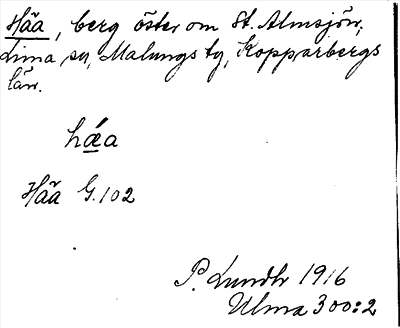 Håa, berg öster om St. Almsjön,
Lima sn, Malungs tg, Kopparbergs
län.
hǽa
Håa G.102
P. Lundhr 1916
Ulma 300:2